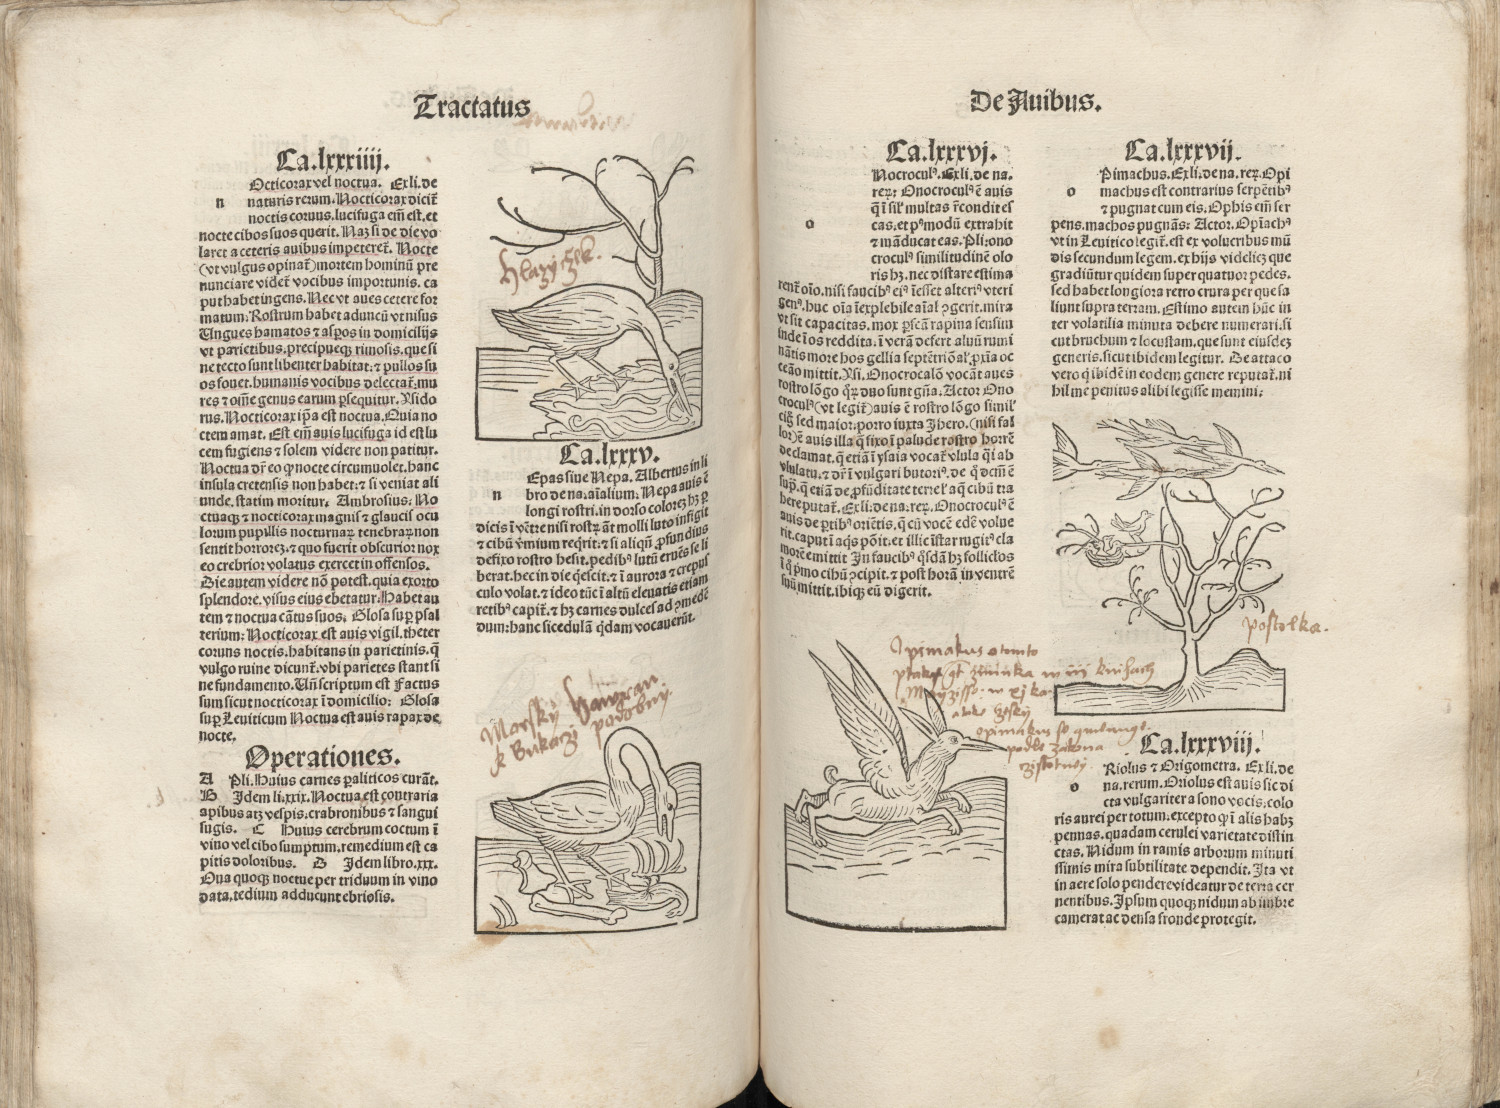 Tractatus
Ca.lxxxiiij.
Octicorax vel noctua. Ex li. de
n naturis rerum. Nocticorax dicit̃
noctis coruus. lucifuga em̃ est. et
nocte cibos suos querit. Naʒ si de die vo
laret a ceteris auibus impeteret̃. Nocte
(vt vulgus opinat̃) mortem hominũ pre
nunciare videt̃ vocibus importunis. ca
put habet ingens. Nec vt aues cetere for
matum. Rostrum habet aduncũ vt nisus
Ungues hamatos ⁊ asp̱os in domicilijs
vt parietibus. precipueqʒ rimosis. que si
ne tecto sunt libenter habitat: ⁊ pullos su
os fouet. humanis vocibus delectat̃: mu
res ⁊ om̃e genus earum p̱sequitur. Ysido
rus. Nocticorax ip̃a est noctua. Quia no
ctem amat. Est em̃ auis lucifuga id est lu
cem fugiens ⁊ solem videre non patitur.
Noctua dr̃ eo ꝙ nocte circumuolet. hanc
insula cretensis non habet: ⁊ si veniat ali
unde. statim moritur. Ambrosius: No
ctuaqʒ ⁊ nocticorax magnis ⁊ glaucis ocu
lorum pupillis nocturnaꝝ tenebraꝝ non
sentit horroreʒ. ⁊ quo fuerit obscurior nox
eo crebrior volatus exercet in offensos.
Die autem videre nõ potest. quia exorto
splendore. visus eius ebetatur. Habet au
tem ⁊ noctua cãtus suos. Glosa suꝑ psal
terium: Nocticorax est auis vigil. theter
coruus noctis. habitans in parietinis. ꝙ
vulgo ruine dicunt̃. vbi parietes stant si
ne fundamento. Uñ scriptum est Factus
sum sicut nocticorax ĩ domicilio: Glosa
suꝑ Leuiticum Noctua est auis rapax de
nocte.
Operationes.
A Pli. Huius carnes ꝑaliticos curãt.
B Idem li.xxix. Noctua est contraria
apibus atqʒ vespis. crabronibus ⁊ sangui
sugis. C Huius cerebrum coctum ĩ
vino vel cibo sumptum. remedium est ca
pitis doloribus. D Idem libro.xxx.
Oua quoqʒ noctue per triduum in vino
data. tedium adducunt ebriosis.
Ca.lxxxv.
Epas siue Nepa. Albertus in li
n bro de na. aĩalium: Nepa auis ẽ
longi rostri. in dorso coloreʒ hʒ ꝑ
dicis ĩ vẽtre nisi rostꝝ ãt molli luto infigit
⁊ cibũ v̾mium req̃rit: ⁊ si aliqñ ꝓfundius
defixo rostro hesit. pedibꝰ lutũ eruẽs se li
berat. hec in die q̃escit. ⁊ ĩ aurora ⁊ crepus
culo volat. ⁊ ideo tũc ĩ altũ eleuatis etiam
retibꝰ capit̃. ⁊ hʒ carnes dulces ad ꝯmedẽ
dum: hanc sicedulã q̃dam vocauerũt.
Morský
podobny
k Bukači
De Auibus.
Ca.lxxxvj.
Nocroculꝰ. Ex li. de na.
reꝝ: Onocroculꝰ ẽ auis
q̃ ĩ sil' multas r̃condit es
o cas. et pꝰmodũ extrahit
⁊ mãducat eas. Pli: ono
croculꝰ similitudinẽ olo
ris hʒ. nec distare estima
ret̃ oĩo. nisi faucibꝰ eiꝰ ĩesset alteriꝰ vteri
genꝰ. huc oĩa ĩexplebile aĩal ꝯgerit. mira
vt sit capacitas. mox ꝑfcã rapina sensim
inde ĩ os reddita. ĩ verã defert aluũ rumi
nãtis more hos gellia septẽtriõal' ꝓxĩa oc
ceão mittit. Ysi. Onocrocalõ vocãt aues
rostro lõgo q̃ꝝ duo sunt gña. Actor Ono
croculꝰ (vt legit̃) auis ẽ rostro lõgo simil'
cig̃ sed maior. porro iuxta Jhero. (nisi fal
lor) ẽ auis illa q̃ fixo ĩ palude rostro horrẽ
de clamat. q̃ etiã ĩ ysaia vocat̃ vlula q̃i ab
vlulatu. ⁊ dr̃ ĩ vulgari butoriꝰ. de q̃ dcm̃ ẽ
sup̃. q̃ etiã de ꝓfũditate terre l' aq̃ cibũ tra
here putat̃. Ex li. de na. reꝝ. Onocroculꝰ ẽ
auis de ꝑtibꝰ oriẽtis. q̃ cũ vocẽ edẽ volue
rit. caput ĩ aq̃s põit. et illic ĩstar rugitꝰ cla
morẽ emittit In faucibꝰ q̃sdã hʒ folliclos
ĩ q̃ pmo cibũ ꝯcipit. ⁊ post horã in ventrẽ
suũ mittit. ibiqʒ eũ digerit.
Opimakus
Ca.lxxxvij.
Pimachus. Ex li. de na. reꝝ. Opi
o machus est contrarius serpẽtibꝰ
⁊ pugnat cum eis. Ophis em̃ ser
pens. machos pugnãs: Actor. Opĩachꝰ
vt in Leuitico legit̃. est ex volucribus mũ
dis secundum legem. ex hijs videliceʒ que
gradiũtur quidem super quatuor pedes.
sed habet longiora retro crura per que sa
liunt supra terram. Estimo autem hũc in
ter volatilia minuta debere numerari. si
cut bruchum ⁊ locustam. que sunt eiusdeʒ
generis. sicut ibidem legitur. De attaco
vero q̃ ibidẽ in eodem genere reputat̃. ni
hil me penitus alibi legisse memini:
postolka.
Ca.lxxxviij.
Riolus ⁊ Origometra. Ex li. de
o na. rerum. Oriolus est auis sic di
cta vulgariter a sono vocis. colo
ris aurei per totum. excepto q̃ ĩ alis habʒ
pennas. quadam cerulei varietate distin
ctas. Nidum in ramis arborum minuti
ssimis mira subtilitate dependit. Ita vt
in aere solo pendere videatur de terra cer
nentibus. Ipsum quoqʒ nidum ab imbre
camerat ac densa fronde protegit.